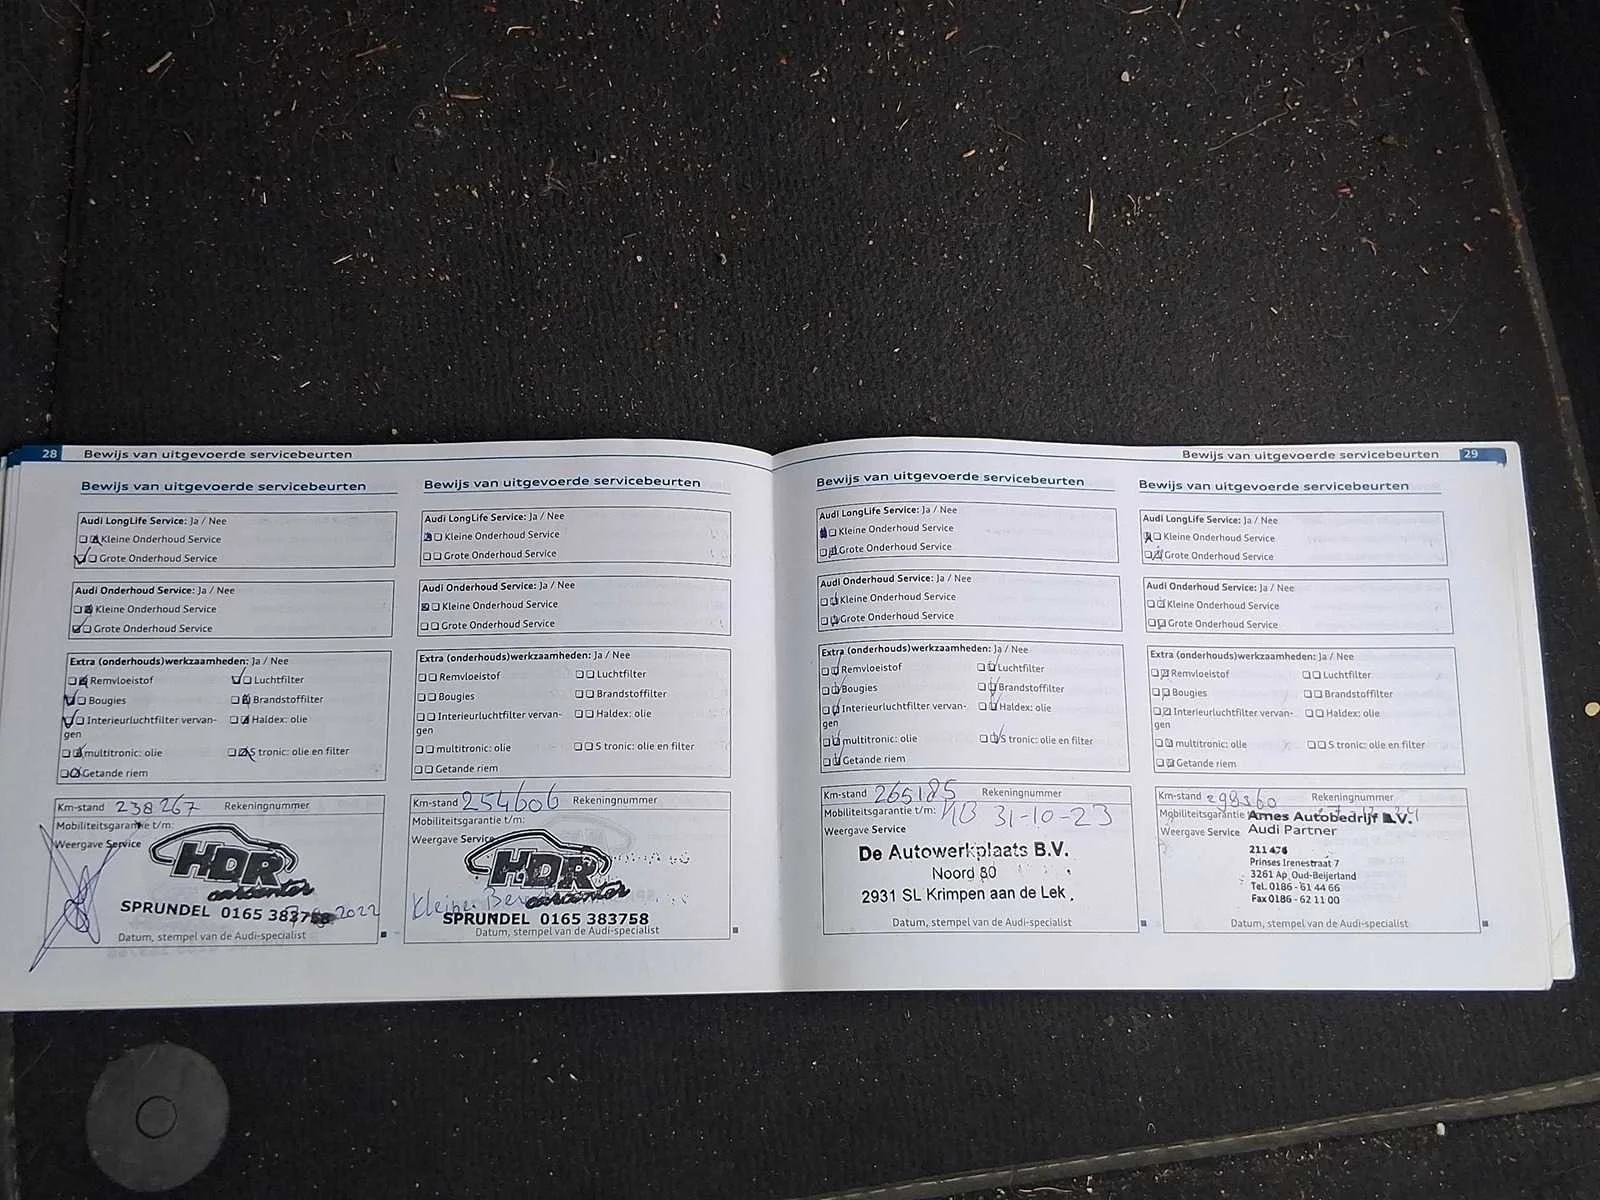 28 Bewijs van uitgevoerde servicebeurten
Bewijs van uitgevoerde servicebeurten
Audi LongLife Service: Ja / Nee
Kleine Onderhoud Service
Grote Onderhoud Service
Audi Onderhoud Service: Ja / Nee
Kleine Onderhoud Service
Grote Onderhoud Service
Extra (onderhouds)werkzaamheden: Ja / Nee
Remvloeistof Luchtfilter
Bougies Brandstoffilter
Interieurluchtfilter vervan- Haldex: olie
gen
multitronic: olie S tronic: olie en filter
Getande riem
Km-stand 238267 Rekeningnummer
Mobiliteitsgarantie t/m:
Weergave Service
HDR
carcenter
SPRUNDEL 0165 383758
2022
Datum, stempel van de Audi-specialist
Bewijs van uitgevoerde servicebeurten
Audi LongLife Service: Ja / Nee
Kleine Onderhoud Service
Grote Onderhoud Service
Audi Onderhoud Service: Ja / Nee
Kleine Onderhoud Service
Grote Onderhoud Service
Extra (onderhouds)werkzaamheden: Ja / Nee
Remvloeistof Luchtfilter
Bougies Brandstoffilter
Interieurluchtfilter vervan- Haldex: olie
gen
multitronic: olie S tronic: olie en filter
Getande riem
Km-stand 254606 Rekeningnummer
Mobiliteitsgarantie t/m:
Weergave Service
HDR
carcenter
Kleine
SPRUNDEL 0165 383758
Datum, stempel van de Audi-specialist
Bewijs van uitgevoerde servicebeurten 29
Bewijs van uitgevoerde servicebeurten
Audi LongLife Service: Ja / Nee
Kleine Onderhoud Service
Grote Onderhoud Service
Audi Onderhoud Service: Ja / Nee
Kleine Onderhoud Service
Grote Onderhoud Service
Extra (onderhouds)werkzaamheden: Ja / Nee
Remvloeistof Luchtfilter
Bougies Brandstoffilter
Interieurluchtfilter vervan- Haldex: olie
gen
multitronic: olie S tronic: olie en filter
Getande riem
Km-stand 265185 Rekeningnummer
Mobiliteitsgarantie t/m: 31-10-23
Weergave Service
De Autowerkplaats B.V.
Noord 80
2931 SL Krimpen aan de Lek
Datum, stempel van de Audi-specialist
Bewijs van uitgevoerde servicebeurten
Audi LongLife Service: Ja / Nee
Kleine Onderhoud Service
Grote Onderhoud Service
Audi Onderhoud Service: Ja / Nee
Kleine Onderhoud Service
Grote Onderhoud Service
Extra (onderhouds)werkzaamheden: Ja / Nee
Remvloeistof Luchtfilter
Bougies Brandstoffilter
Interieurluchtfilter vervan- Haldex: olie
gen
multitronic: olie S tronic: olie en filter
Getande riem
Km-stand Rekeningnummer
Mobiliteitsgarantie
Ames Autobedrijf B.V.
Weergave Service Audi Partner
211 476
Prinses Irenestraat 7
3261 Ap Oud-Beijerland
Tel. 0186 - 61 44 66
Fax 0186 - 62 11 00
Datum, stempel van de Audi-specialist